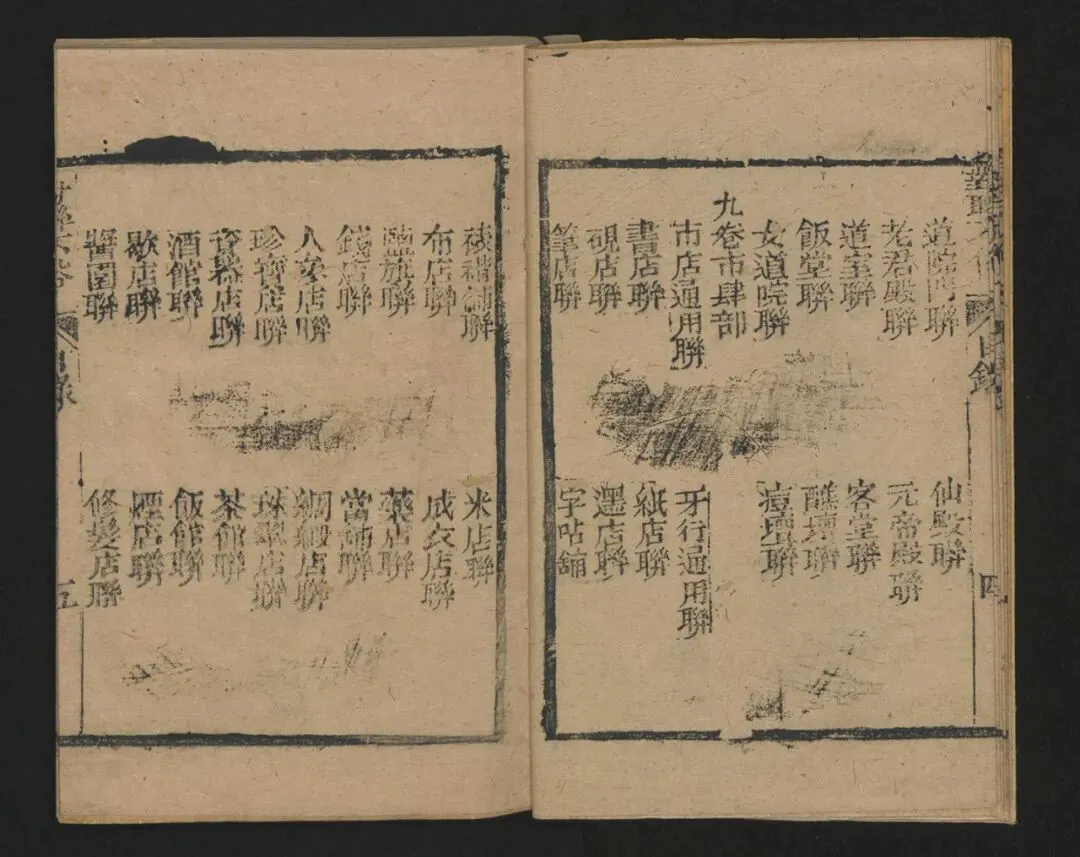 目錄 四
道院門聯 仙殿聯
老君殿聯 元帝殿聯
道室聯 客堂聯
飯堂聯 醮壇聯
女道院聯 痘壇聯
九卷市肆部
市店通用聯 牙行通用聯
書店聯 紙店聯
硯店聯 墨店聯
筆店聯 字呫舖
裱褙舖聯 米店聯
布店聯 成衣店聯
聯 藥店聯
錢店聯 當舖聯
人參店聯 綢緞店聯
珍寶店聯 珠翠店聯
店聯 茶館聯
酒館聯 飯館聯
歇店聯 煙店聯
醬園聯 修髮店聯
目錄 五